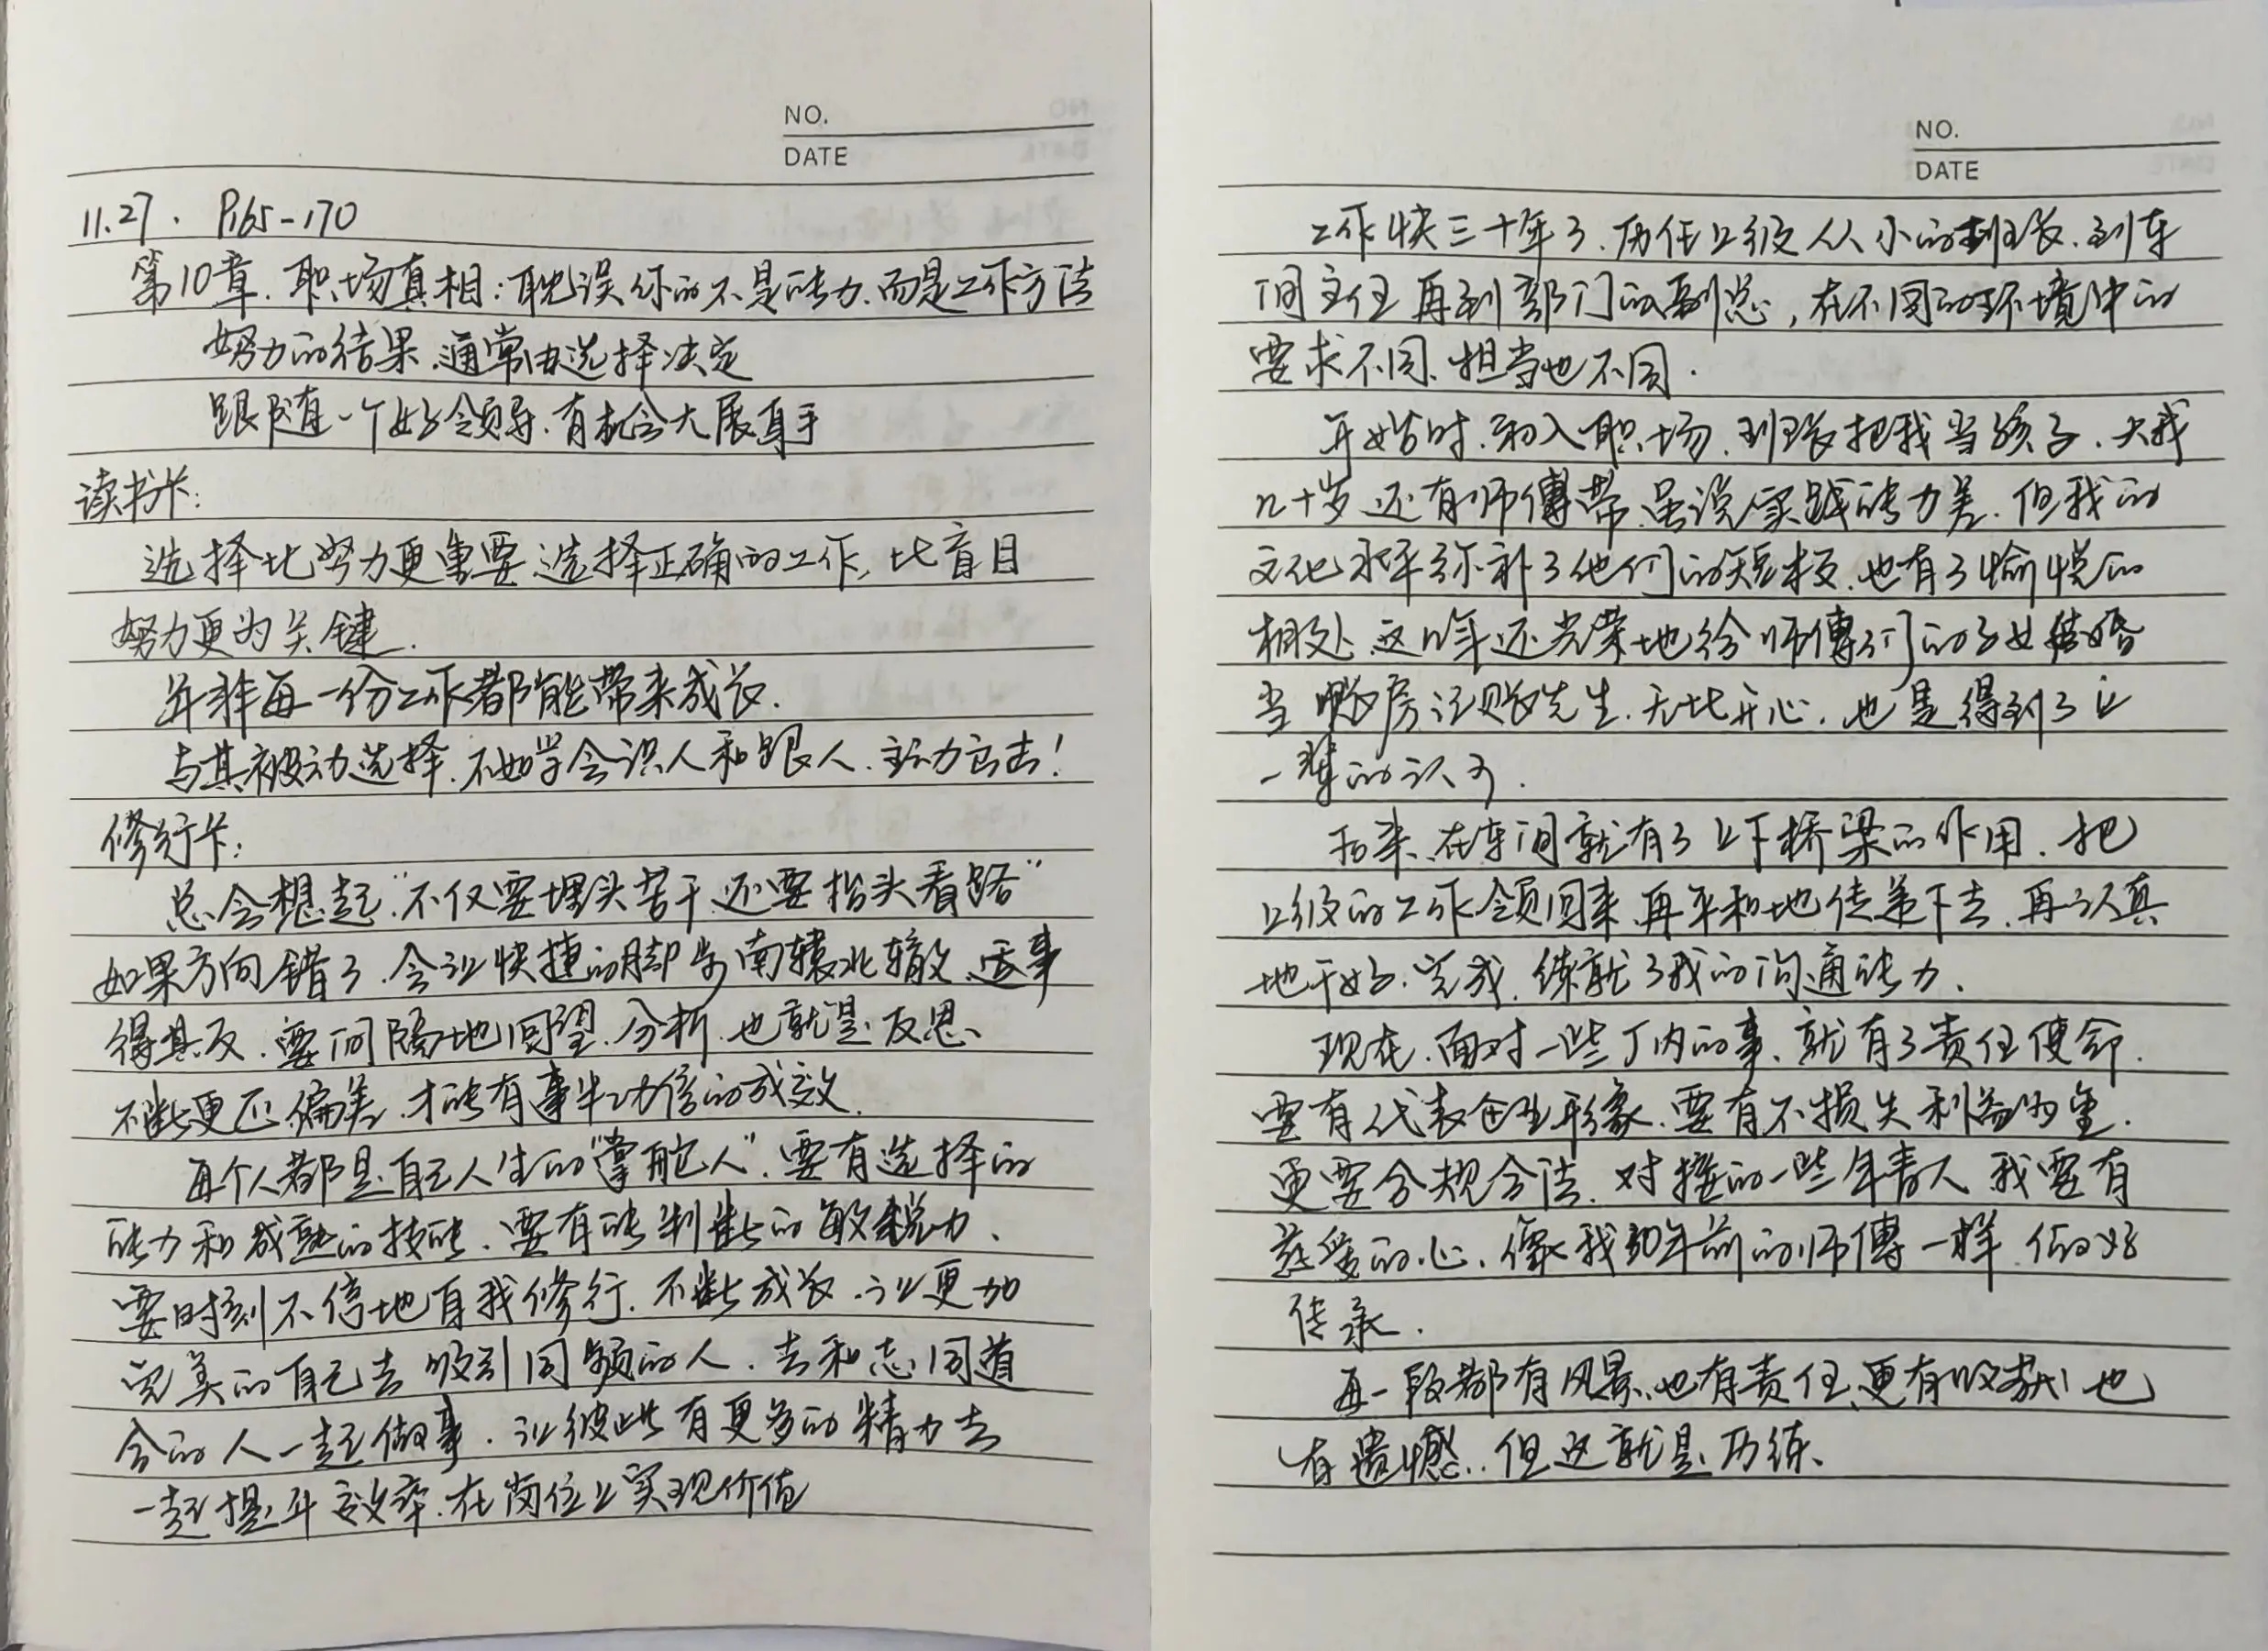 NO.
DATE
11.27. P165-170
第10章.职场真相:耽误你的不是能力.而是工作方法
努力的结果.通常由选择决定
跟随一个好领导.有机会大展身手
读书卡:
选择比努力更重要.选择正确的工作,比盲目
努力更为关键.
并非每一份工作都能带来成长.
与其被动选择.不如学会识人和跟人.主动出击!
修行卡:
总会想起“不仅要埋头苦干.还要抬头看路”
如果方向错了.会让快捷的脚步南辕北辙.适事
得其反.要间隔地回望.分析.也就是反思、
不断更正偏差.才能有事半功倍的成效.
每个人都是自己人生的“掌舵人”.要有选择的
能力和成熟的技能.要有能判断的敏锐力、
要时刻不停地自我修行.不断成长.让更加
完美的自己去吸引同频的人.去和志同道
合的人一起做事.让彼此有更多的精力去
一起提升效率.在岗位上实现价值
NO.
DATE
工作快三十年了.历任上级从小的班长.到车
间主任再到部门的副总,在不同的环境中的
要求不同.担当也不同.
开始时.初入职场.班长把我当孩子.大我
几十岁.还有师傅带.虽说实践能力差.但我的
文化水平弥补了他们的短板.也有了愉悦的
相处.这几年还光荣地给师傅们的子女结婚
当账房记账先生.无比开心.也是得到了上
一辈的认可.
后来.在车间就有了上下桥梁的作用.把
上级的工作领回来.再平和地传递下去.再认真
地干好.完成.练就了我的沟通能力.
现在.面对一些厂内的事.就有了责任使命.
要有代表企业形象.要有不损失利益为重.
更要合规合法.对接的一些年青人我要有
慈爱的心.像我30年前的师傅一样.做好
传承.
每一段都有风景.也有责任.更有收获.也
有遗憾..但这就是历练.